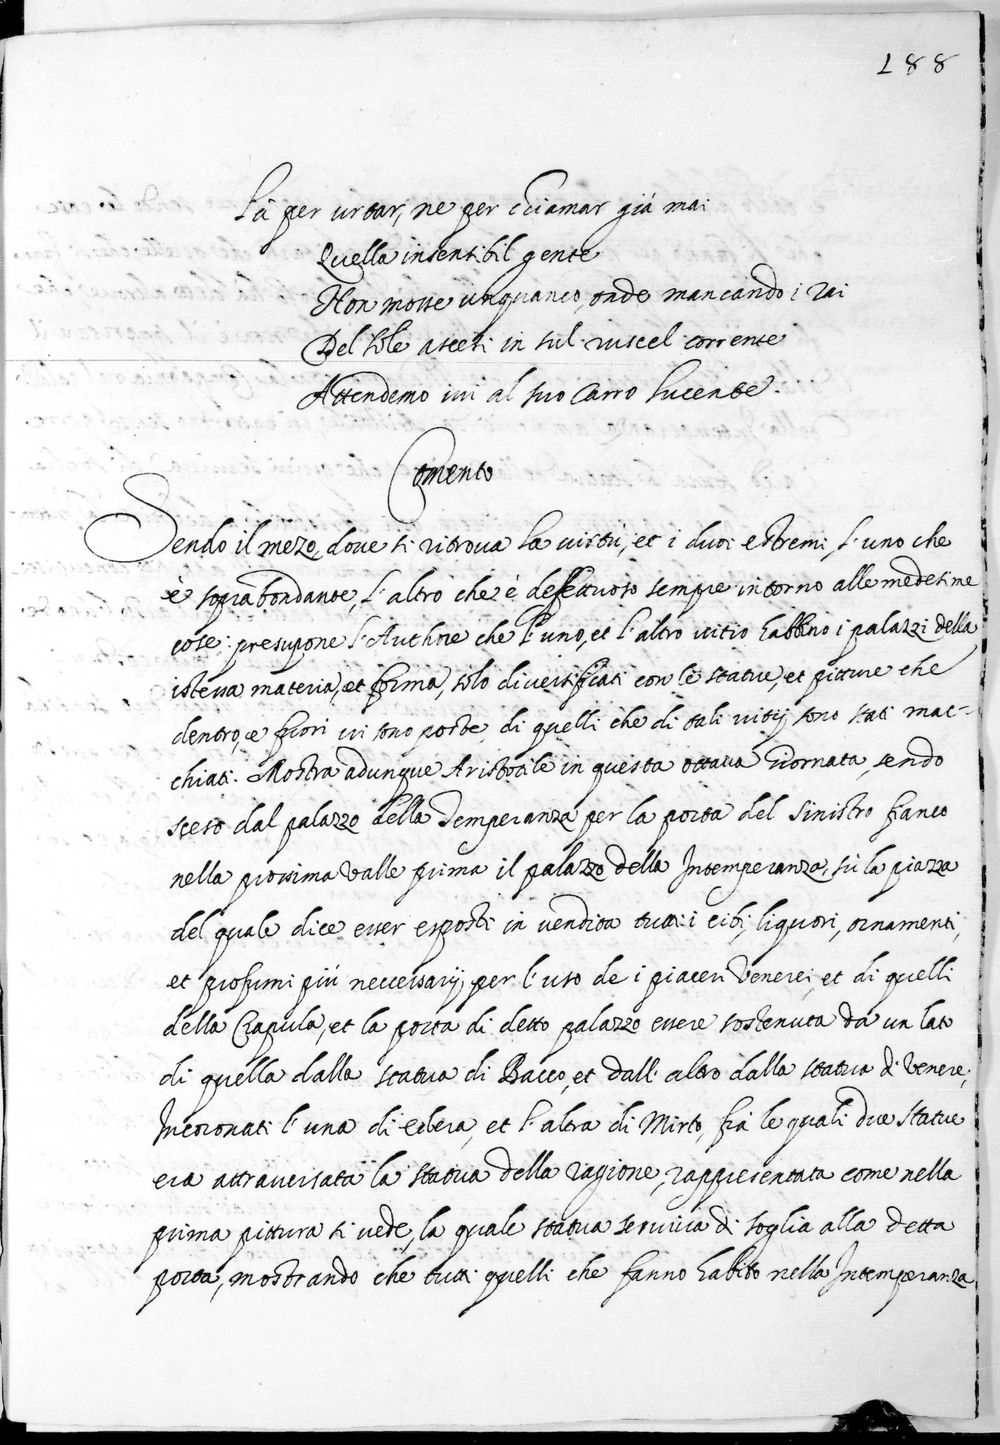 188
Là per urtar, ne per chiamar già mai
Quella insensibil gente
Non mosse unquanco, onde mancando i rai
Del sole ascesi in sul ruscel corrente
Attendemo ivi al suo Carro lucente.
Comento
Sendo il mezo, dove si ritrova la virtù, et i duoi estremi, l'uno che
è soprabondante, l'altro che è deffettuoso sempre intorno alle medesime
cose; presupone l'Authore che l'uno, et l'altro vitio habbino i palazzi della
istessa materia, et forma, solo diversificati con le statue, et pitture che
dentro, e fuori vi sono poste, di quelli che di tali vitij sono stati mac-
chiati. Mostra adunque Aristotile in questa ottava Giornata, sendo
sceso dal palazzo della Temperanza per la porta del sinistro fianco
nella prossima valle prima il palazzo della Intemperanza, sù la piazza
del quale dice esser esposti in vendita tutti i cibi, liquori, ornamenti,
et profumi più necessarij, per l'uso de i piaceri Venerei, et di quelli
della Crapula, et la porta di detto palazzo essere sostenuta da un lato
di quella dalla statua di Bacco, et dall'altro dalla statua di Venere,
Incoronati l'una di edera, et l'altra di Mirto, frà le quali due statue
era attraversata la statua della ragione, rappresentata come nella
prima pittura si vede, la quale statua serviva di soglia alla detta
porta, mostrando che tutti quelli che fanno habito nella Intemperanza